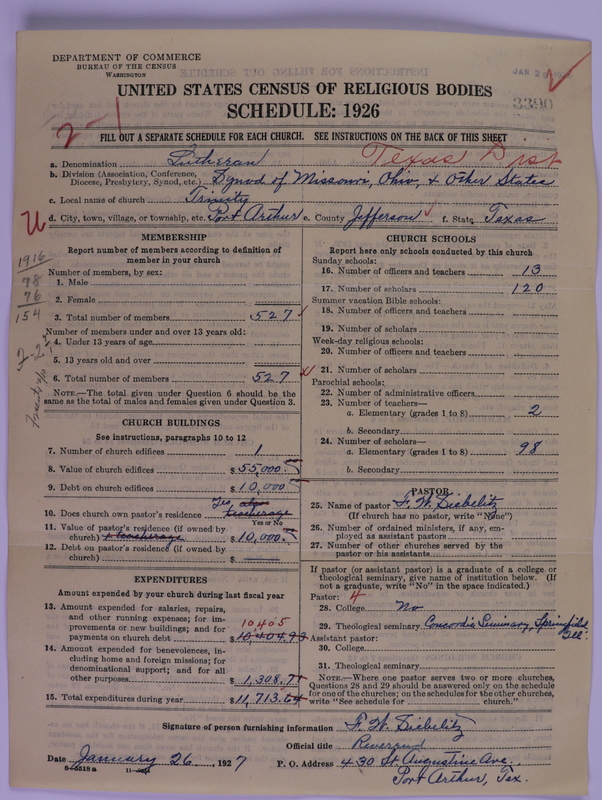 DEPARTMENT OF COMMERCE
BUREAU OF THE CENSUS
WASHINGTON
JAN 2
3390
UNITED STATES CENSUS OF RELIGIOUS BODIES
SCHEDULE: 1926
2-1
FILL OUT A SEPARATE SCHEDULE FOR EACH CHURCH. SEE INSTRUCTIONS ON THE BACK OF THIS SHEET
a. Denomination Lutheran Texas Dist
b. Division (Association, Conference, Diocese, Presbytery, Synod, etc.) Synod of Missouri, Ohio, & Other States
c. Local name of church Trinity
d. City, town, village, or township, etc. Port Arthur e. County Jefferson f. State Texas
U
1916
78
76
154
MEMBERSHIP
Report number of members according to definition of
member in your church
Number of members, by sex:
1. Male
2. Female
3. Total number of members 527
Number of members under and over 13 years old:
4. Under 13 years of age
5. 13 years old and over
6. Total number of members 527
NOTE.—The total given under Question 6 should be the
same as the total of males and females given under Question 3.
CHURCH BUILDINGS
See instructions, paragraphs 10 to 12
7. Number of church edifices 1
8. Value of church edifices $55,000.
9. Debt on church edifices $10,000
10. Does church own pastor's residence Yes, also teacherage
Yes or No
11. Value of pastor's residence (if owned by
church) & teacherage $10,000.
12. Debt on pastor's residence (if owned by
church) $
EXPENDITURES
Amount expended by your church during last fiscal year
13. Amount expended for salaries, repairs,
and other running expenses; for im-
provements or new buildings; and for
10,405
payments on church debt $10,404.93
14. Amount expended for benevolences, in-
cluding home and foreign missions; for
denominational support; and for all
other purposes $1,308.71
15. Total expenditures during year $11,713.64
CHURCH SCHOOLS
Report here only schools conducted by this church
Sunday schools:
16. Number of officers and teachers 13
17. Number of scholars 120
Summer vacation Bible schools:
18. Number of officers and teachers
19. Number of scholars
Week-day religious schools:
20. Number of officers and teachers
21. Number of scholars
Parochial schools:
22. Number of administrative officers
23. Number of teachers—
a. Elementary (grades 1 to 8) 2
b. Secondary
24. Number of scholars—
a. Elementary (grades 1 to 8) 98
b. Secondary
PASTOR
25. Name of pastor F. W. Siebelitz
(If church has no pastor, write "None")
26. Number of ordained ministers, if any, em-
ployed as assistant pastors
27. Number of other churches served by the
pastor or his assistants
If pastor (or assistant pastor) is a graduate of a college or
theological seminary, give name of institution below. (If
not a graduate, write "No" in the space indicated.)
Pastor: 4
28. College No
29. Theological seminary Concordia Seminary, Springfield
Ill.
Assistant pastor:
30. College
31. Theological seminary
NOTE.—Where one pastor serves two or more churches,
Questions 28 and 29 should be answered only on the schedule
for one of the churches; on the schedules for the other churches,
write "See schedule for church."
Signature of person furnishing information F. W. Siebelitz
Official title Reverend
Date January 26, 1927 P. O. Address 430 St Augustine Ave.
Port Arthur, Tex.
6-5518 a